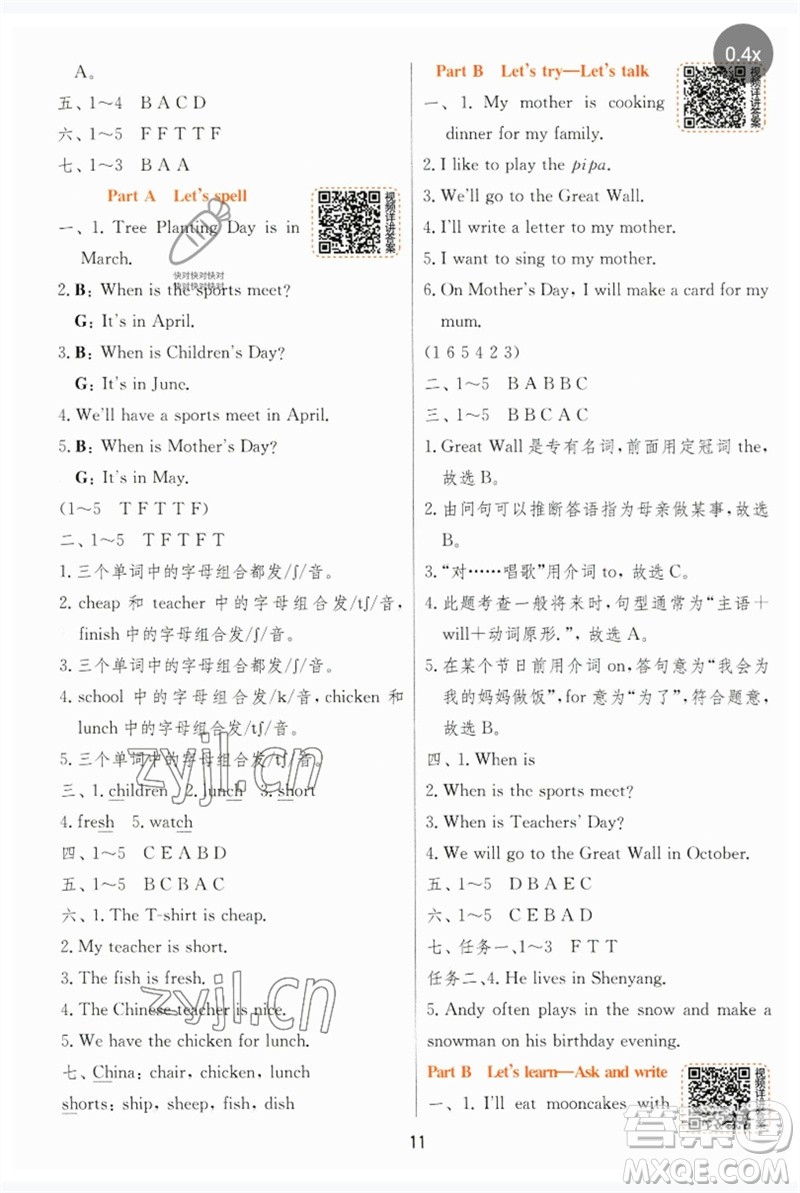 0.4x
A。
五、1～4　B A C D
六、1～5　F F T T F
七、1～3　B A A
Part A　Let's spell
视频详讲答案
一、1. Tree Planting Day is in
March.
快对快对快对
快对快对快对
2. B: When is the sports meet?
G: It's in April.
3. B: When is Children's Day?
G: It's in June.
4. We'll have a sports meet in April.
5. B: When is Mother's Day?
G: It's in May.
(1～5　T F T T F)
二、1～5　T F T F T
1. 三个单词中的字母组合都发/ʃ/音。
2. cheap 和 teacher 中的字母组合发/tʃ/音，
finish 中的字母组合发/ʃ/音。
3. 三个单词中的字母组合都发/ʃ/音。
4. school 中的字母组合发/k/音，chicken 和
lunch 中的字母组合发/tʃ/音。
5. 三个单词中的字母组合都发/tʃ/音。
三、1. children　2. lunch　3. short
4. fresh　5. watch
四、1～5　C E A B D
五、1～5　B C B A C
六、1. The T-shirt is cheap.
2. My teacher is short.
3. The fish is fresh.
4. The Chinese teacher is nice.
5. We have the chicken for lunch.
七、China: chair, chicken, children
shorts: ship, sheep, fish, dish
Part B　Let's try—Let's talk
视频详讲答案
一、1. My mother is cooking
dinner for my family.
2. I like to play the pipa.
3. We'll go to the Great Wall.
4. I'll write a letter to my mother.
5. I want to sing to my mother.
6. On Mother's Day, I will make a card for my
mum.
(1 6 5 4 2 3)
二、1～5　B A B B C
三、1～5　B B C A C
1. Great Wall 是专有名词，前面用定冠词 the，
故选 B。
2. 由问句可以推断答语指为母亲做某事，故选
B。
3. “对……唱歌”用介词 to，故选 C。
4. 此题考查一般将来时，句型通常为“主语＋
will＋动词原形.”，故选 A。
5. 在某个节日前用介词 on，答句意为“我会为
我的妈妈做饭”，for 意为“为了”，符合题意，
故选 B。
四、1. When is
2. When is the sports meet?
3. When is Teachers' Day?
4. We will go to the Great Wall in October.
五、1～5　D B A E C
六、1～5　C E B A D
七、任务一、1～3　F T T
任务二、4. He lives in Shenyang.
5. Andy often plays in the snow and make a
snowman on his birthday evening.
Part B　Let's learn—Ask and write
视频详讲答案
一、1. I'll eat mooncakes with
11
zyjl.cn
zyjl.cn
答案圈
MXQE.COM